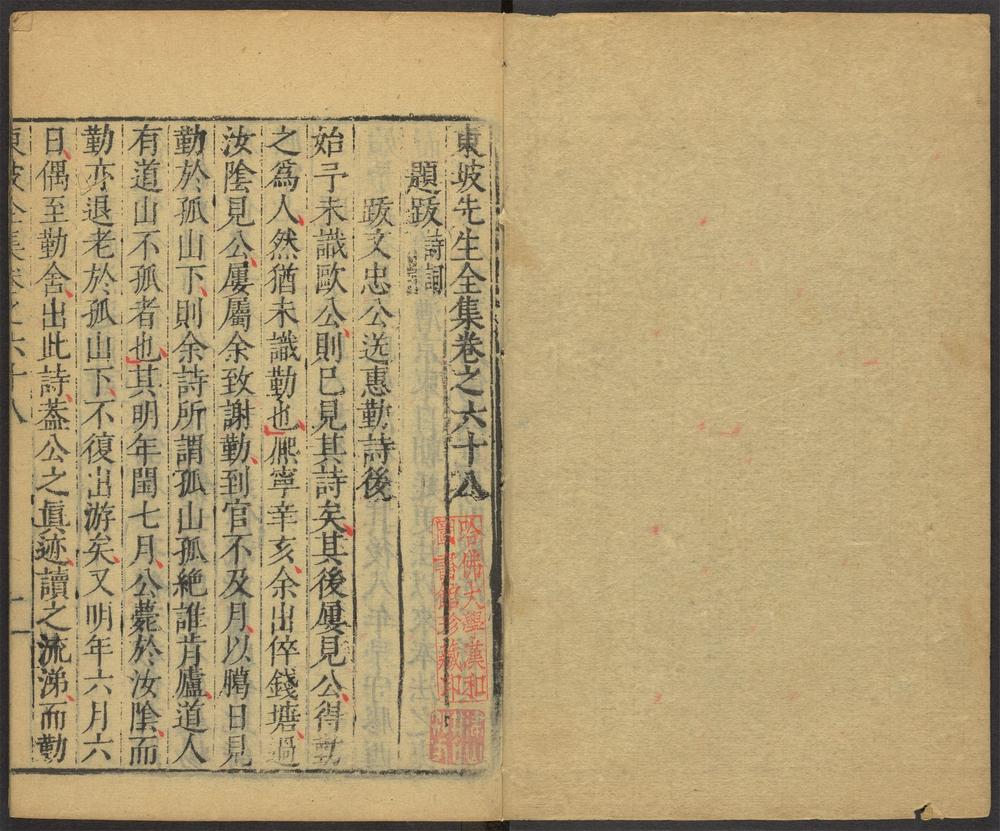 東坡先生全集卷之六十八
題跋詩詞
跋文忠公送惠勤詩後
始予未識歐公則已見其詩矣其後屢見公得勤
之爲人然猶未識勤也熈寧辛亥余出倅錢塘過
汝陰見公屢屬余致謝勤到官不及月以臈日見
勤於孤山下則余詩所謂孤山孤絶誰肯廬道人
有道山不孤者也其明年閏七月公薨於汝陰而
勤亦退老於孤山下不復出游矣又明年六月六
日偶至勤舍出此詩葢公之眞迹讀之流涕而勤
東坡全集卷之六十八 一
哈佛大學漢和
圖書館珍藏印